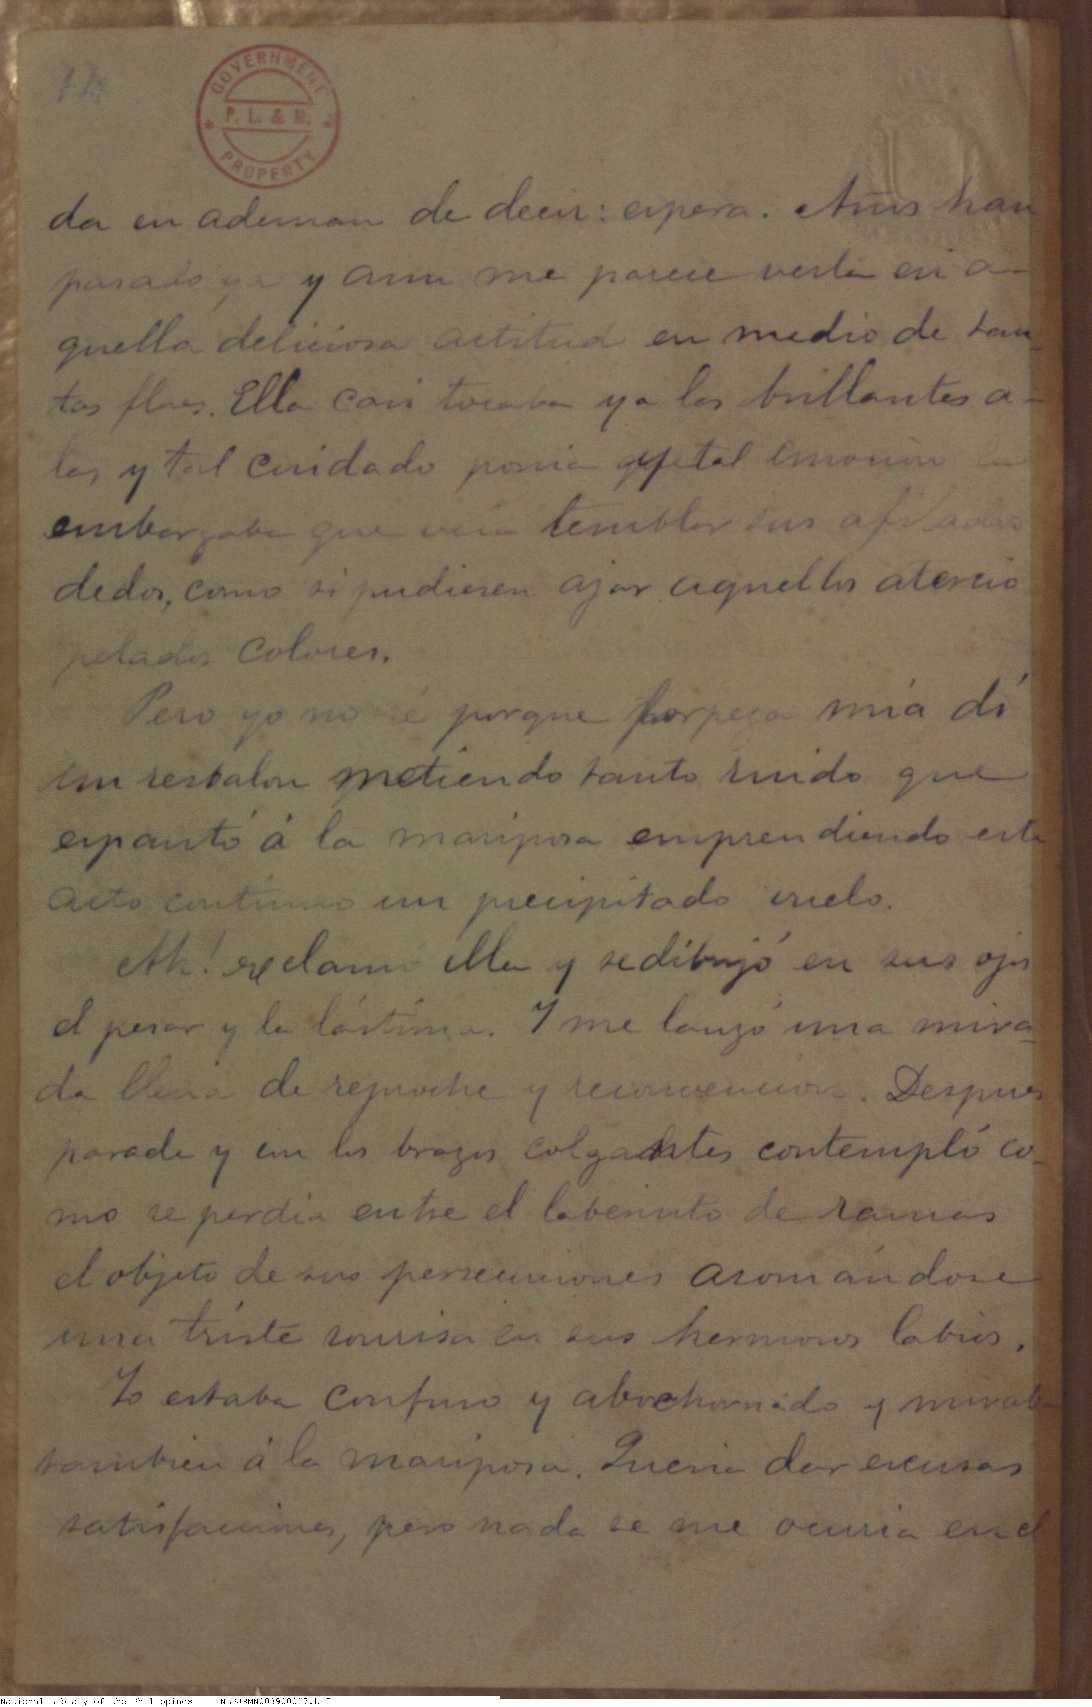 GOVERNMENT
P. L. & M.
PROPERTY
da en ademan de decir: espera. Años han
pasado ya y aun me parece verla en a-
quella deliciosa actitud en medio de tan-
tas flores. Ella casi tocaba ya las brillantes a-
las y tal cuidado ponia y tal emocion la
embargaba que veía temblar sus afilados
dedos, como si pudiesen ajar aquellos atercio
pelados colores.
Pero yo no sé porque torpeza mía dí
un resbalon metiendo tanto ruido que
espantó á la mariposa emprendiendo esta
acto continuo un precipitado vuelo.
Ah! exclamó ella y se dibujó en sus ojos
el pesar y la lástima. Y me lanzó una mira-
da llena de reproche y reconvencion. Despues
parada y con los brazos colgantes contempló co-
mo se perdia entre el laberinto de ramas
el objeto de sus persecuciones asomándose
una triste sonrisa en sus hermosos labios.
Yo estaba confuso y abochornado y miraba
tambien á la mariposa. Queria dar excusas
satisfacciones, pero nada se me ocurria en el
National Library of the Philippines